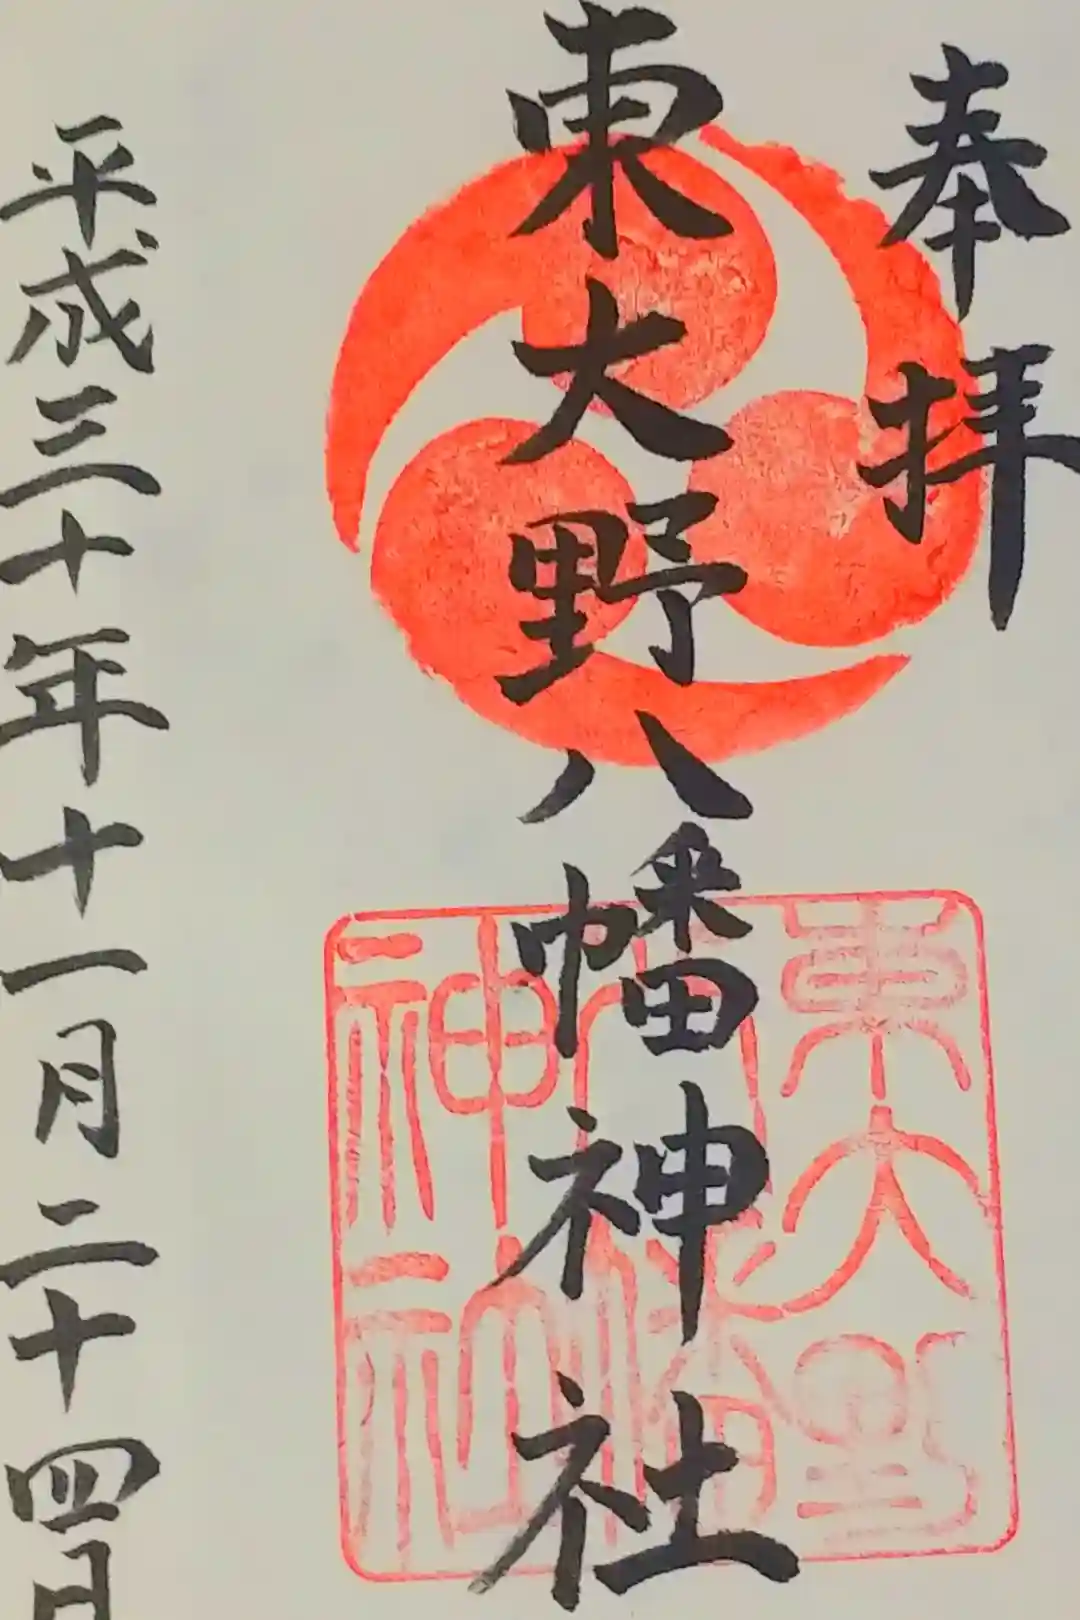 奉拝
東大野八幡神社
平成三十年十一月二十四日
東大野
八幡
神社